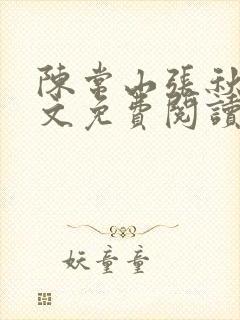 陳常山張秋
文免費閱讀
妖童童